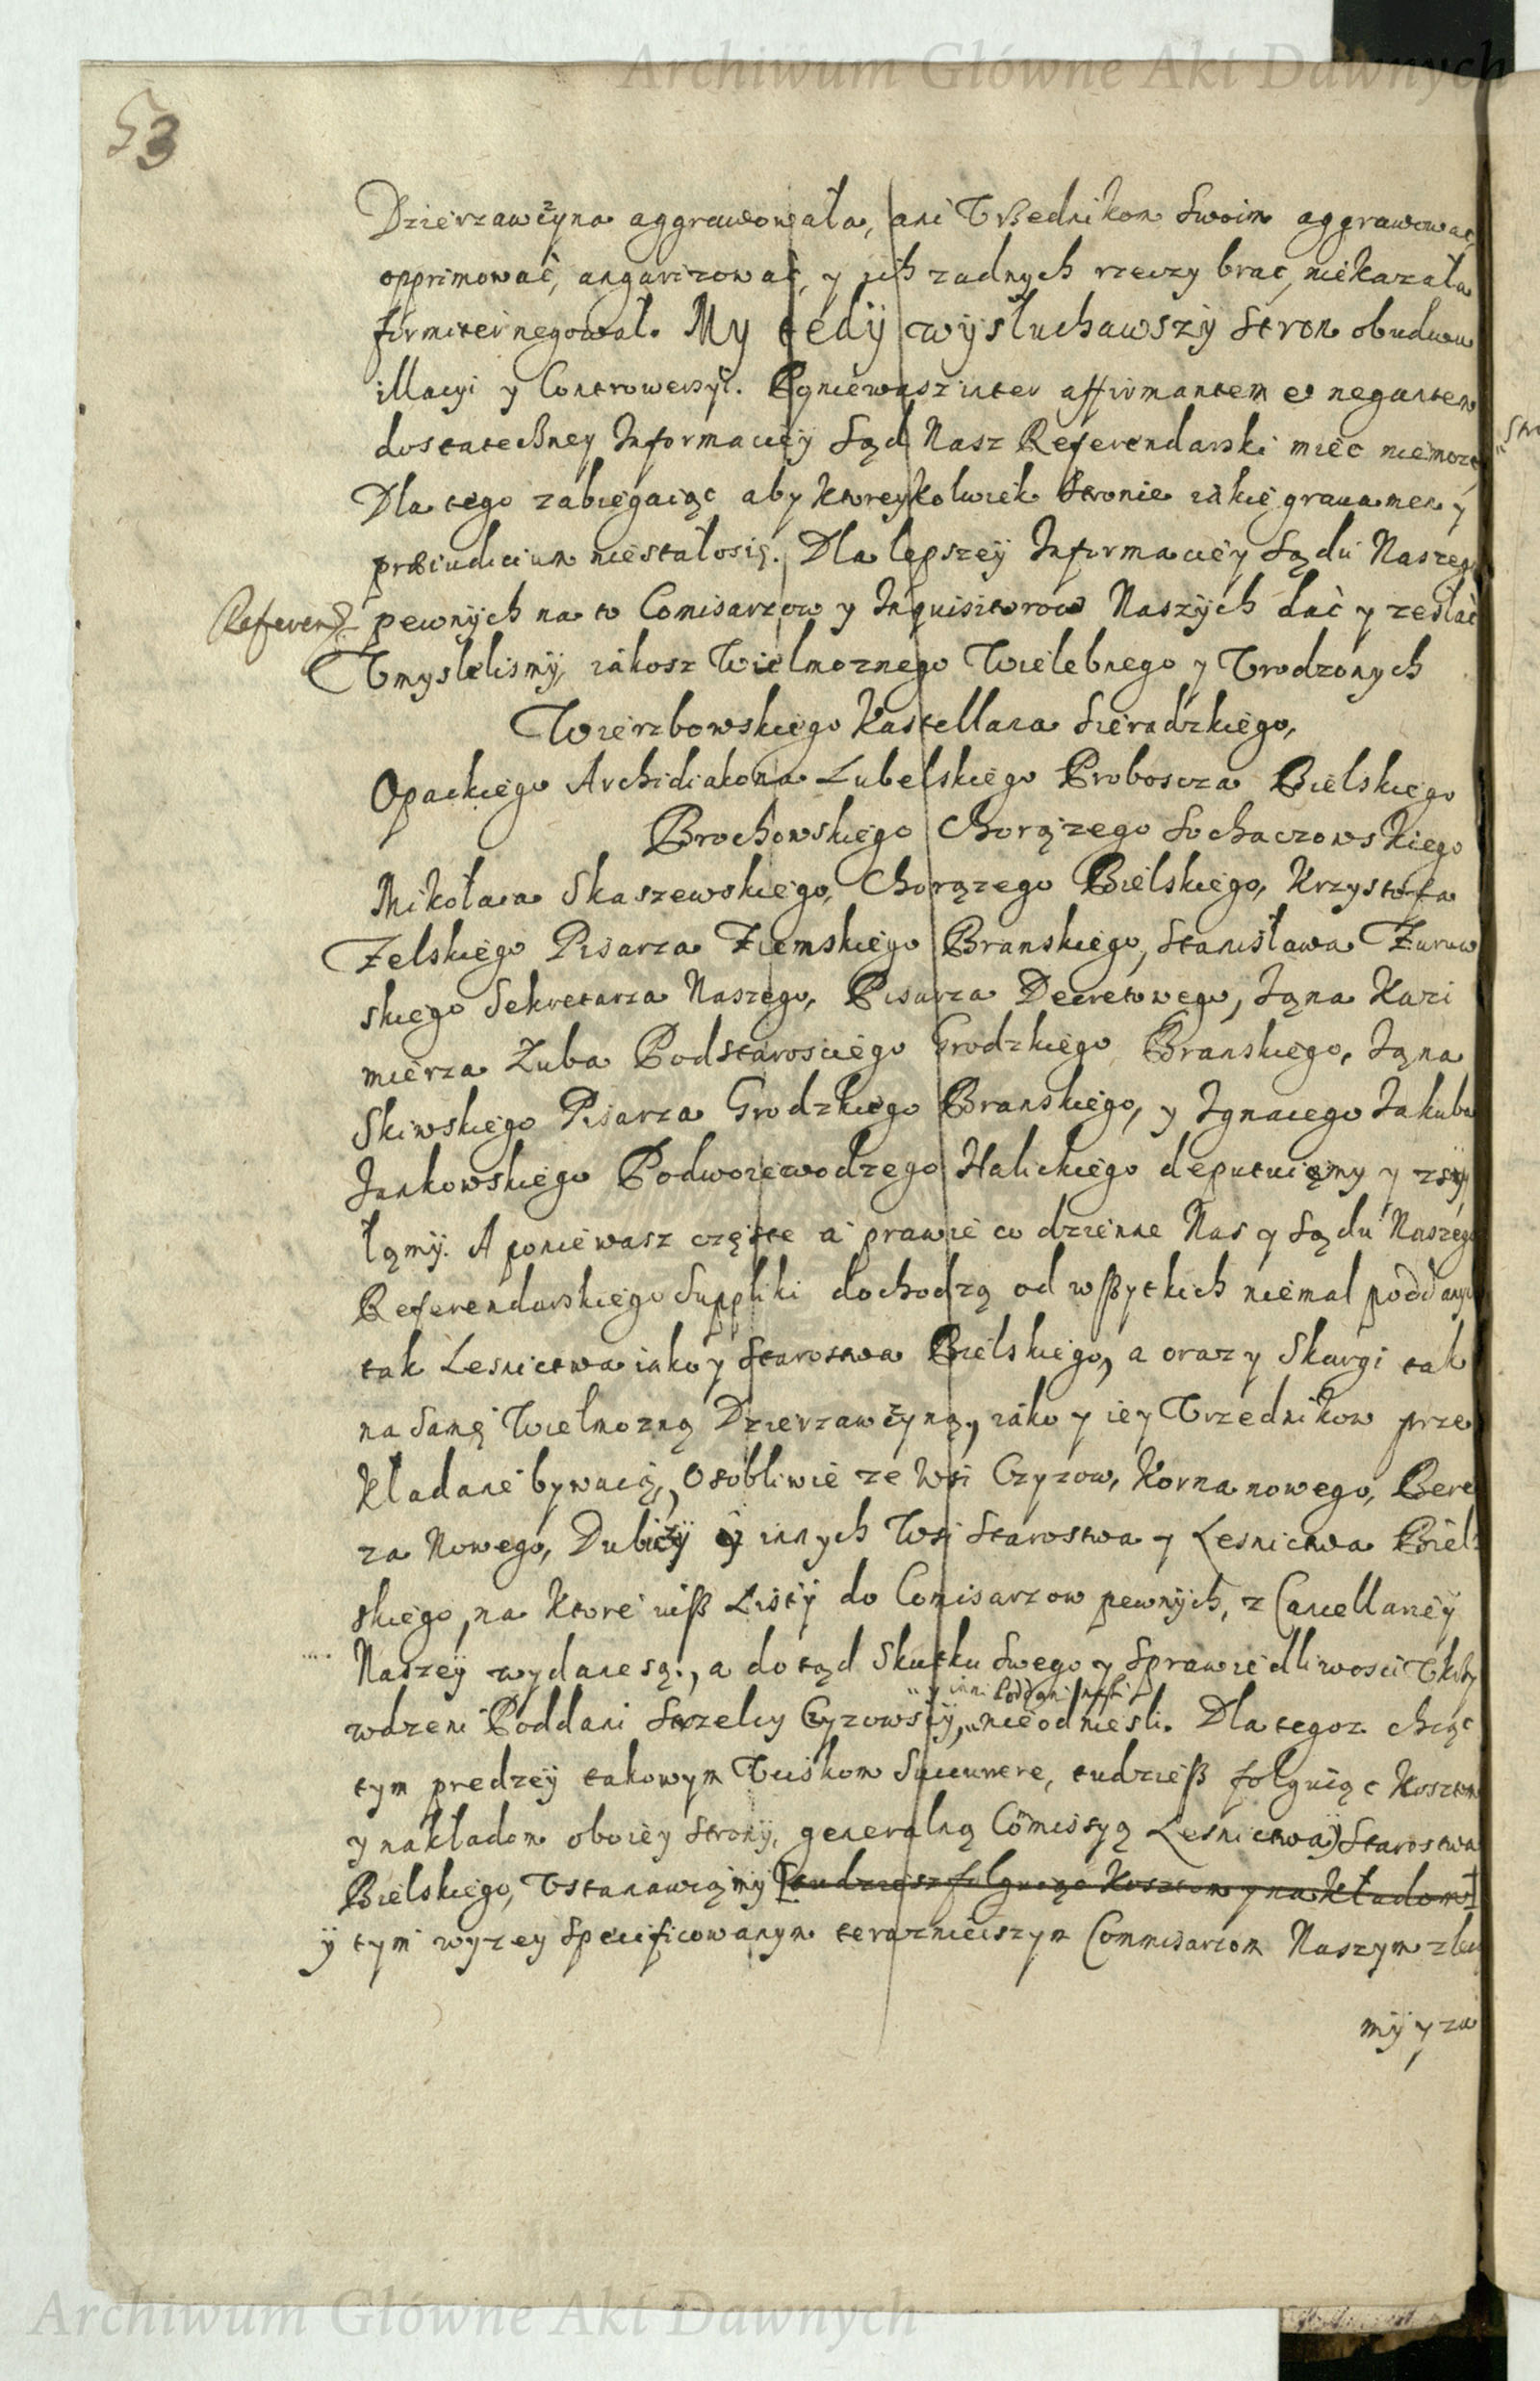 Archiwum Główne Akt Dawnych
53
Dzierzawczyna aggrawowała, ani Vrzednikom Swoim aggrawowac,
opprimować, angarizować, y ich zadnych rzeczy brac, niekazała
firmiter negował. My tedÿ wÿsłuchawszÿ Stron obudwu
illacyi y Controwersyi. Poniewasz inter affirmantem et negantem
dostateczney Informaciey Sąd Nasz Referendarski miec niemoze
Dla tego zabiegaiąc aby ktoreykolwiek Stronie iakie grauamen y
præiudicium niestałosię. Dla lepszeÿ Informaciey Sądu Naszego
Referend. pewnÿch na to Comisarzow y Inquisitorow Naszÿch dać y zesłać
Vmyslelismÿ, iákosz Wielmoznego Wielebnego y Vrodzonych
Wierzbowskiego Kastellana Sieradzkiego,
Opackiego Archidiakona Lubelskiego Proboscza Bielskiego
Brochowskiego Chorązego Sochaczowskiego
Mikołaia Skaszewskiego, Chorązego Bielskiego, Krzysztofa
Zelskiego Pisarza Ziemskiego Branskiego, Stanisława Zuraw
skiego Sekretarza Naszego, Pisarza Decretowego, Iąna Kazi
mierza Zuba Podstarosciego Grodzkiego Branskiego, Iąna
Skiwskiego Pisarza Grodzkiego Branskiego, y Ignacego Iakuba
Jankowskiego Podwoiewodzego Halickiego deputuięmy y zsÿ
łąmÿ. A poniewasz częste a prawie co dzienne Nas y Sądu Naszego
Referendarskiego Suppliki dochodzą od wßytkich niemal poddanych
tak Lesnictwa iako y Starostwa Bielskiego, a oraz y Skargi tak
na Samę Wielmozną Dzierzawczyną, iáko y iey Vrzednikow prze
kładane bywaią, Osobliwie ze Wsi Czyzow, Korna nowego, Bere
za Nowego, Dubiczÿ y innych Wsi Starostwa y Lesnictwa Biel:
skiego, na ktore iuß Listÿ do Comisarzow pewnÿch, z Cancellarieÿ
Naszeÿ wydane są, a dotąd Skutku Swego y Sprawiedliwosci
y inni Poddani nasi
wdzeni Poddani Strzelcy Czyzowscÿ, nieodniesli. Dla tegoz chcąc
tym predzeÿ takowym Vciskom Succurrere, tudzieß folguiąc Kosztom
y nakładom oboiey Stronÿ, generalną Comissyą Lesnictwa y Starostwa
Bielskiego, Vstanawiąmÿ [tudziesz folguiąc Kosztom y nakładom]
ÿ tym wyzey Specificowanym teraznieiszym Commisarzom Naszym zleca
mÿ y za
Archiwum Główne Akt Dawnych